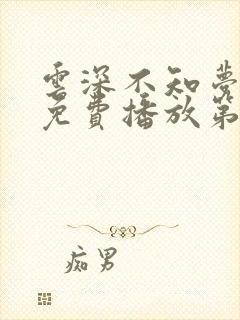 雲深不知夢
免費播放第
痴男